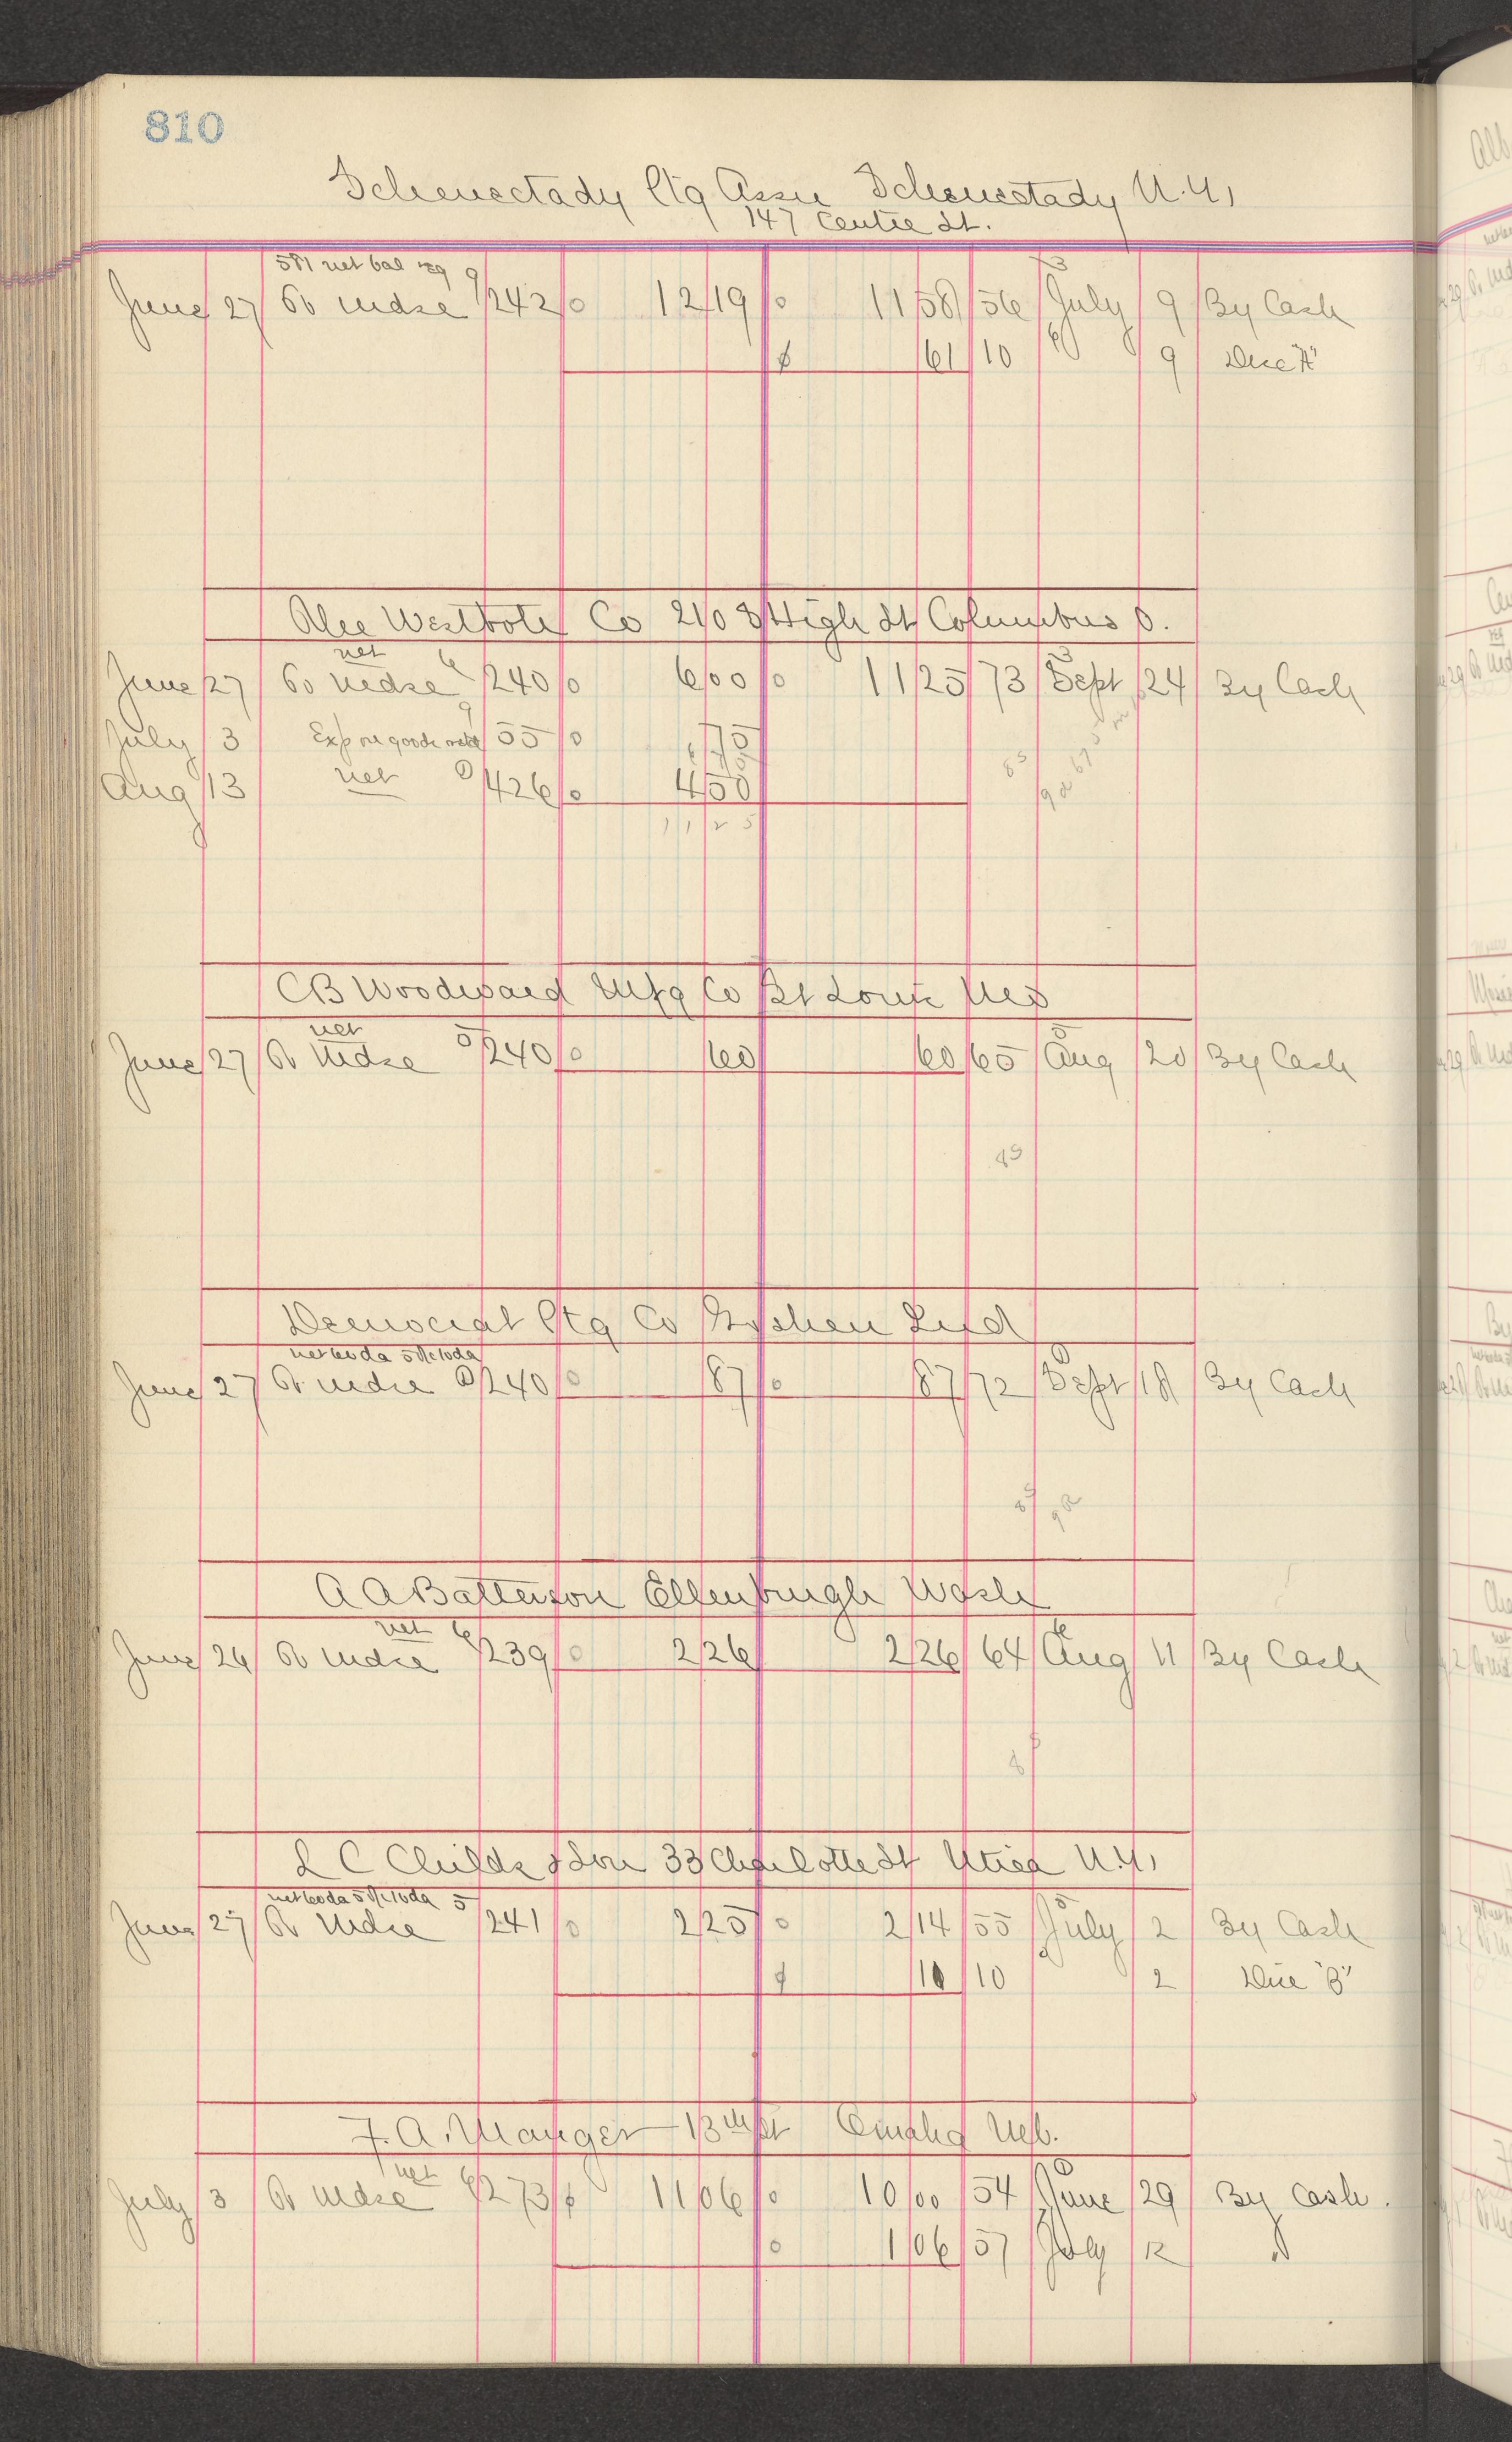 810
Schenectady Ptg Assn Schenectady N.Y.
147 Centre St.
5%1 net bal 9
June 27 To Mdse 242 12 19 11 58 56 July 9 By Cash
61 10 9 Due "A"
Westbote Co 210 S High St Columbus O.
net 6
June 27 To Mdse 240 6 00 11 25 73 Sept 24 By Cash
July 3 Exp on goods 55 75
Aug 13 net 426 4 50
11 25
C B Woodward Mfg Co St Louis Mo
net 5
June 27 To Mdse 240 60 60 65 Aug 20 By Cash
45
Democrat Ptg Co Goshen Ind
net 60 da 5% 10 da
June 27 To Mdse 240 87 87 72 Sept 18 By Cash
A A Batterson Ellenburgh Wash
net 6
June 26 To Mdse 239 2 26 2 26 64 Aug 11 By Cash
L C Childs & Son 33 Charlotte St Utica N.Y.
net 60 da 5% 10 da 5
June 27 To Mdse 241 2 25 2 14 55 July 2 By Cash
10 10 2 Due "B"
F. A. Manger 13th St Omaha Neb.
net 6
July 3 To Mdse 273 11 06 10 00 54 June 29 By Cash.
1 06 57 July 12